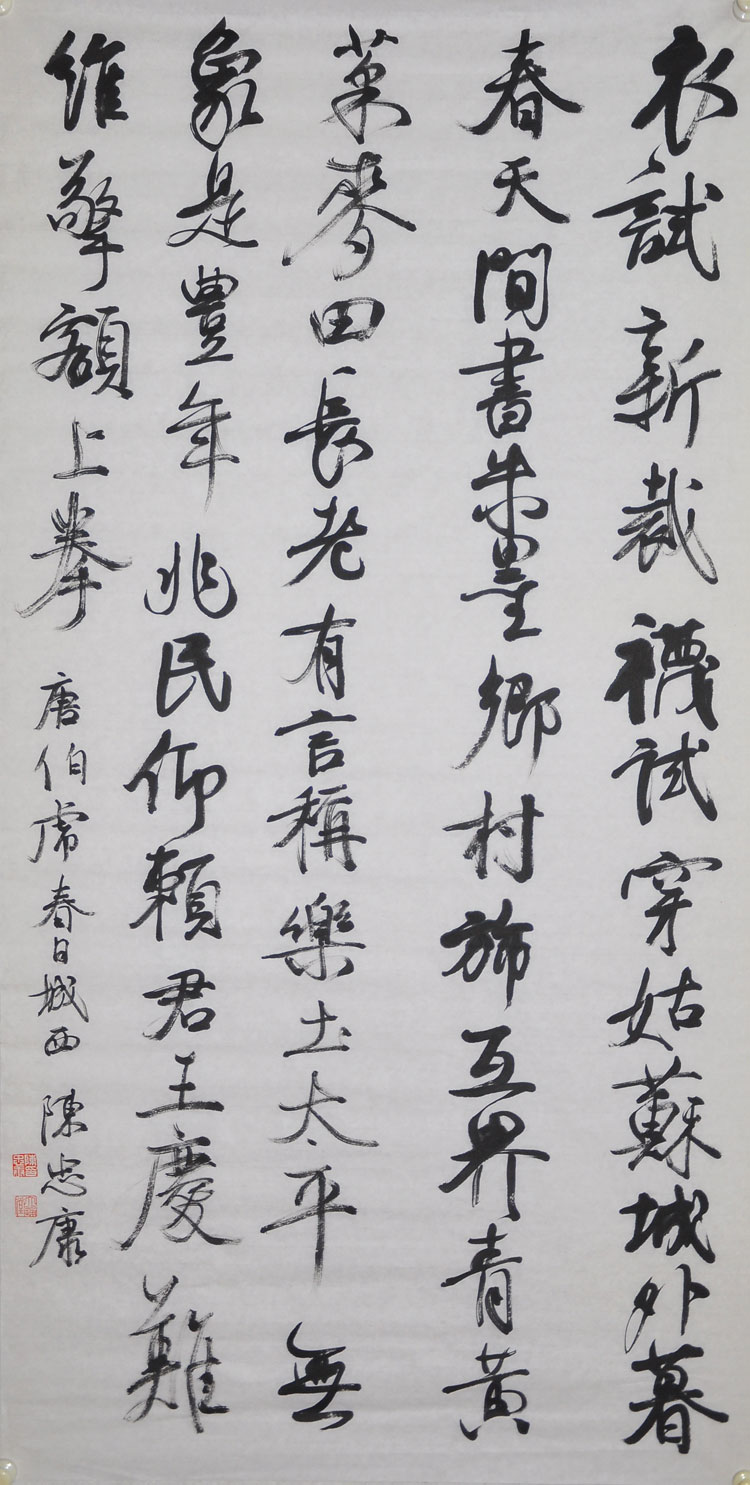 衣試新裁襪試穿姑蘇城外暮
春天間書朱墨鄉村旆互界青黃
菜麥田長老有言稱樂土太平無
象是豐年兆民仰賴君王慶難
維擎額上拳
唐伯虎春日城西 陳忠康